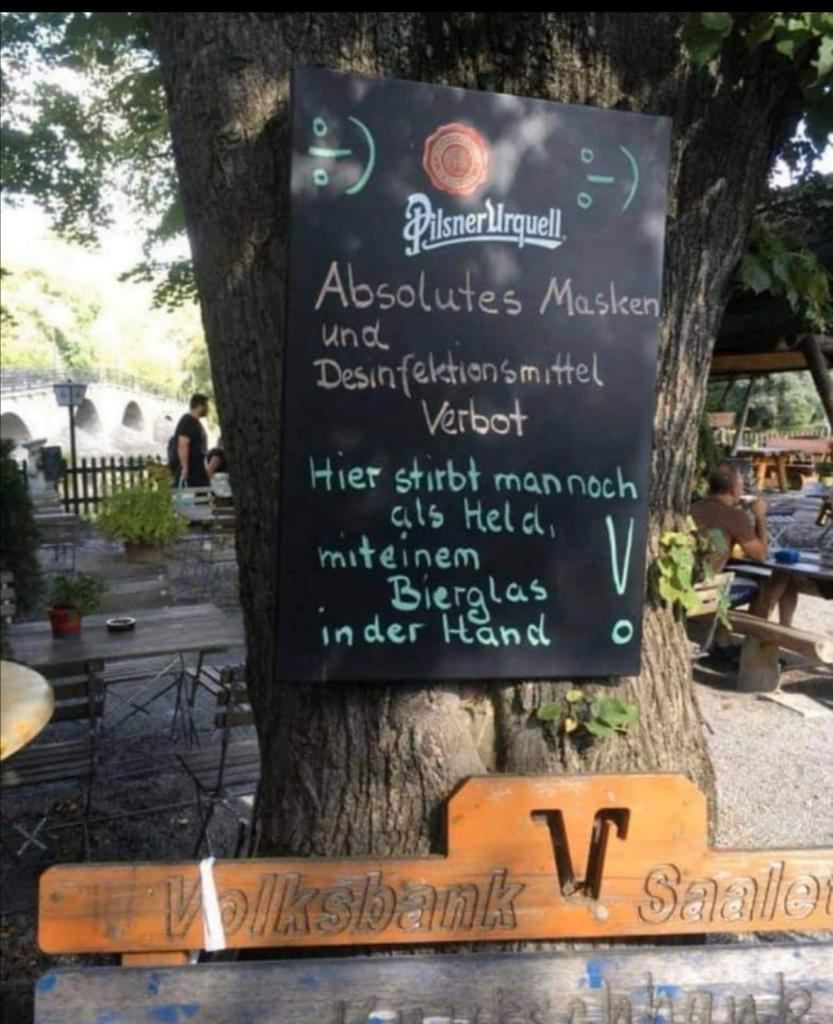 Pilsner Urquell
Absolutes Masken
und
Desinfektionsmittel
Verbot
Hier stirbt man noch
als Held,
mit einem
Bierglas
in der Hand !
Volksbank Saale